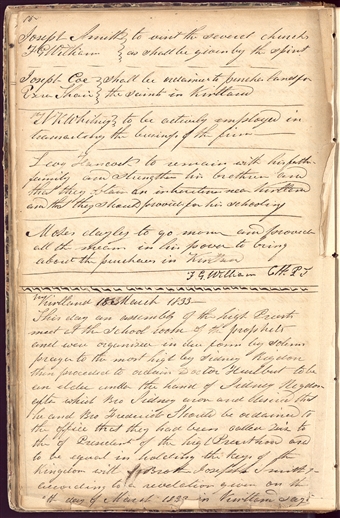 Joseph Smith } to visit the several church
F G William } as shall be given by the spirit
Joseph Coe } shall be ordained to purchase lands for
Ezra Thair } the saints in Kirtland
N K Whitney } to be actively employed in
transacting the business of the firm
Levi Hancock to remain with his father
family and strengthen his brethren and
that they obtain an inheritance near Kirtland
and that they should provide for his schooling
Moses dayley to go and provide
all the means in his power to bring
about the purchases in Kirtland
F G William C.H.P.T
Kirtland 18 March 1833—
This day an assembly of the high Priests
meet at the school of the prophets
and were organized in due form by solemn
prayer to the most high by Sidney Rigdon
then proceeded to ordain Doctor Hurlbut to be
an elder under the hand of Sidney Rigdon
after which Bro Sidney arose and desired that
he and Bro Frederick should be ordained to
the office that they had been called to
of President of the high Priesthood and
to be equal in holding the keys of the
Kingdom with Joseph Smith
according to a revelation given on the
th day of March 1833 in Kirtland